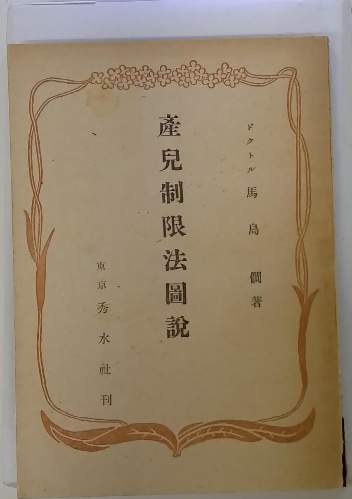 ドクトル 馬島 僴著
產兒制限法圖說
東京 秀水社刊